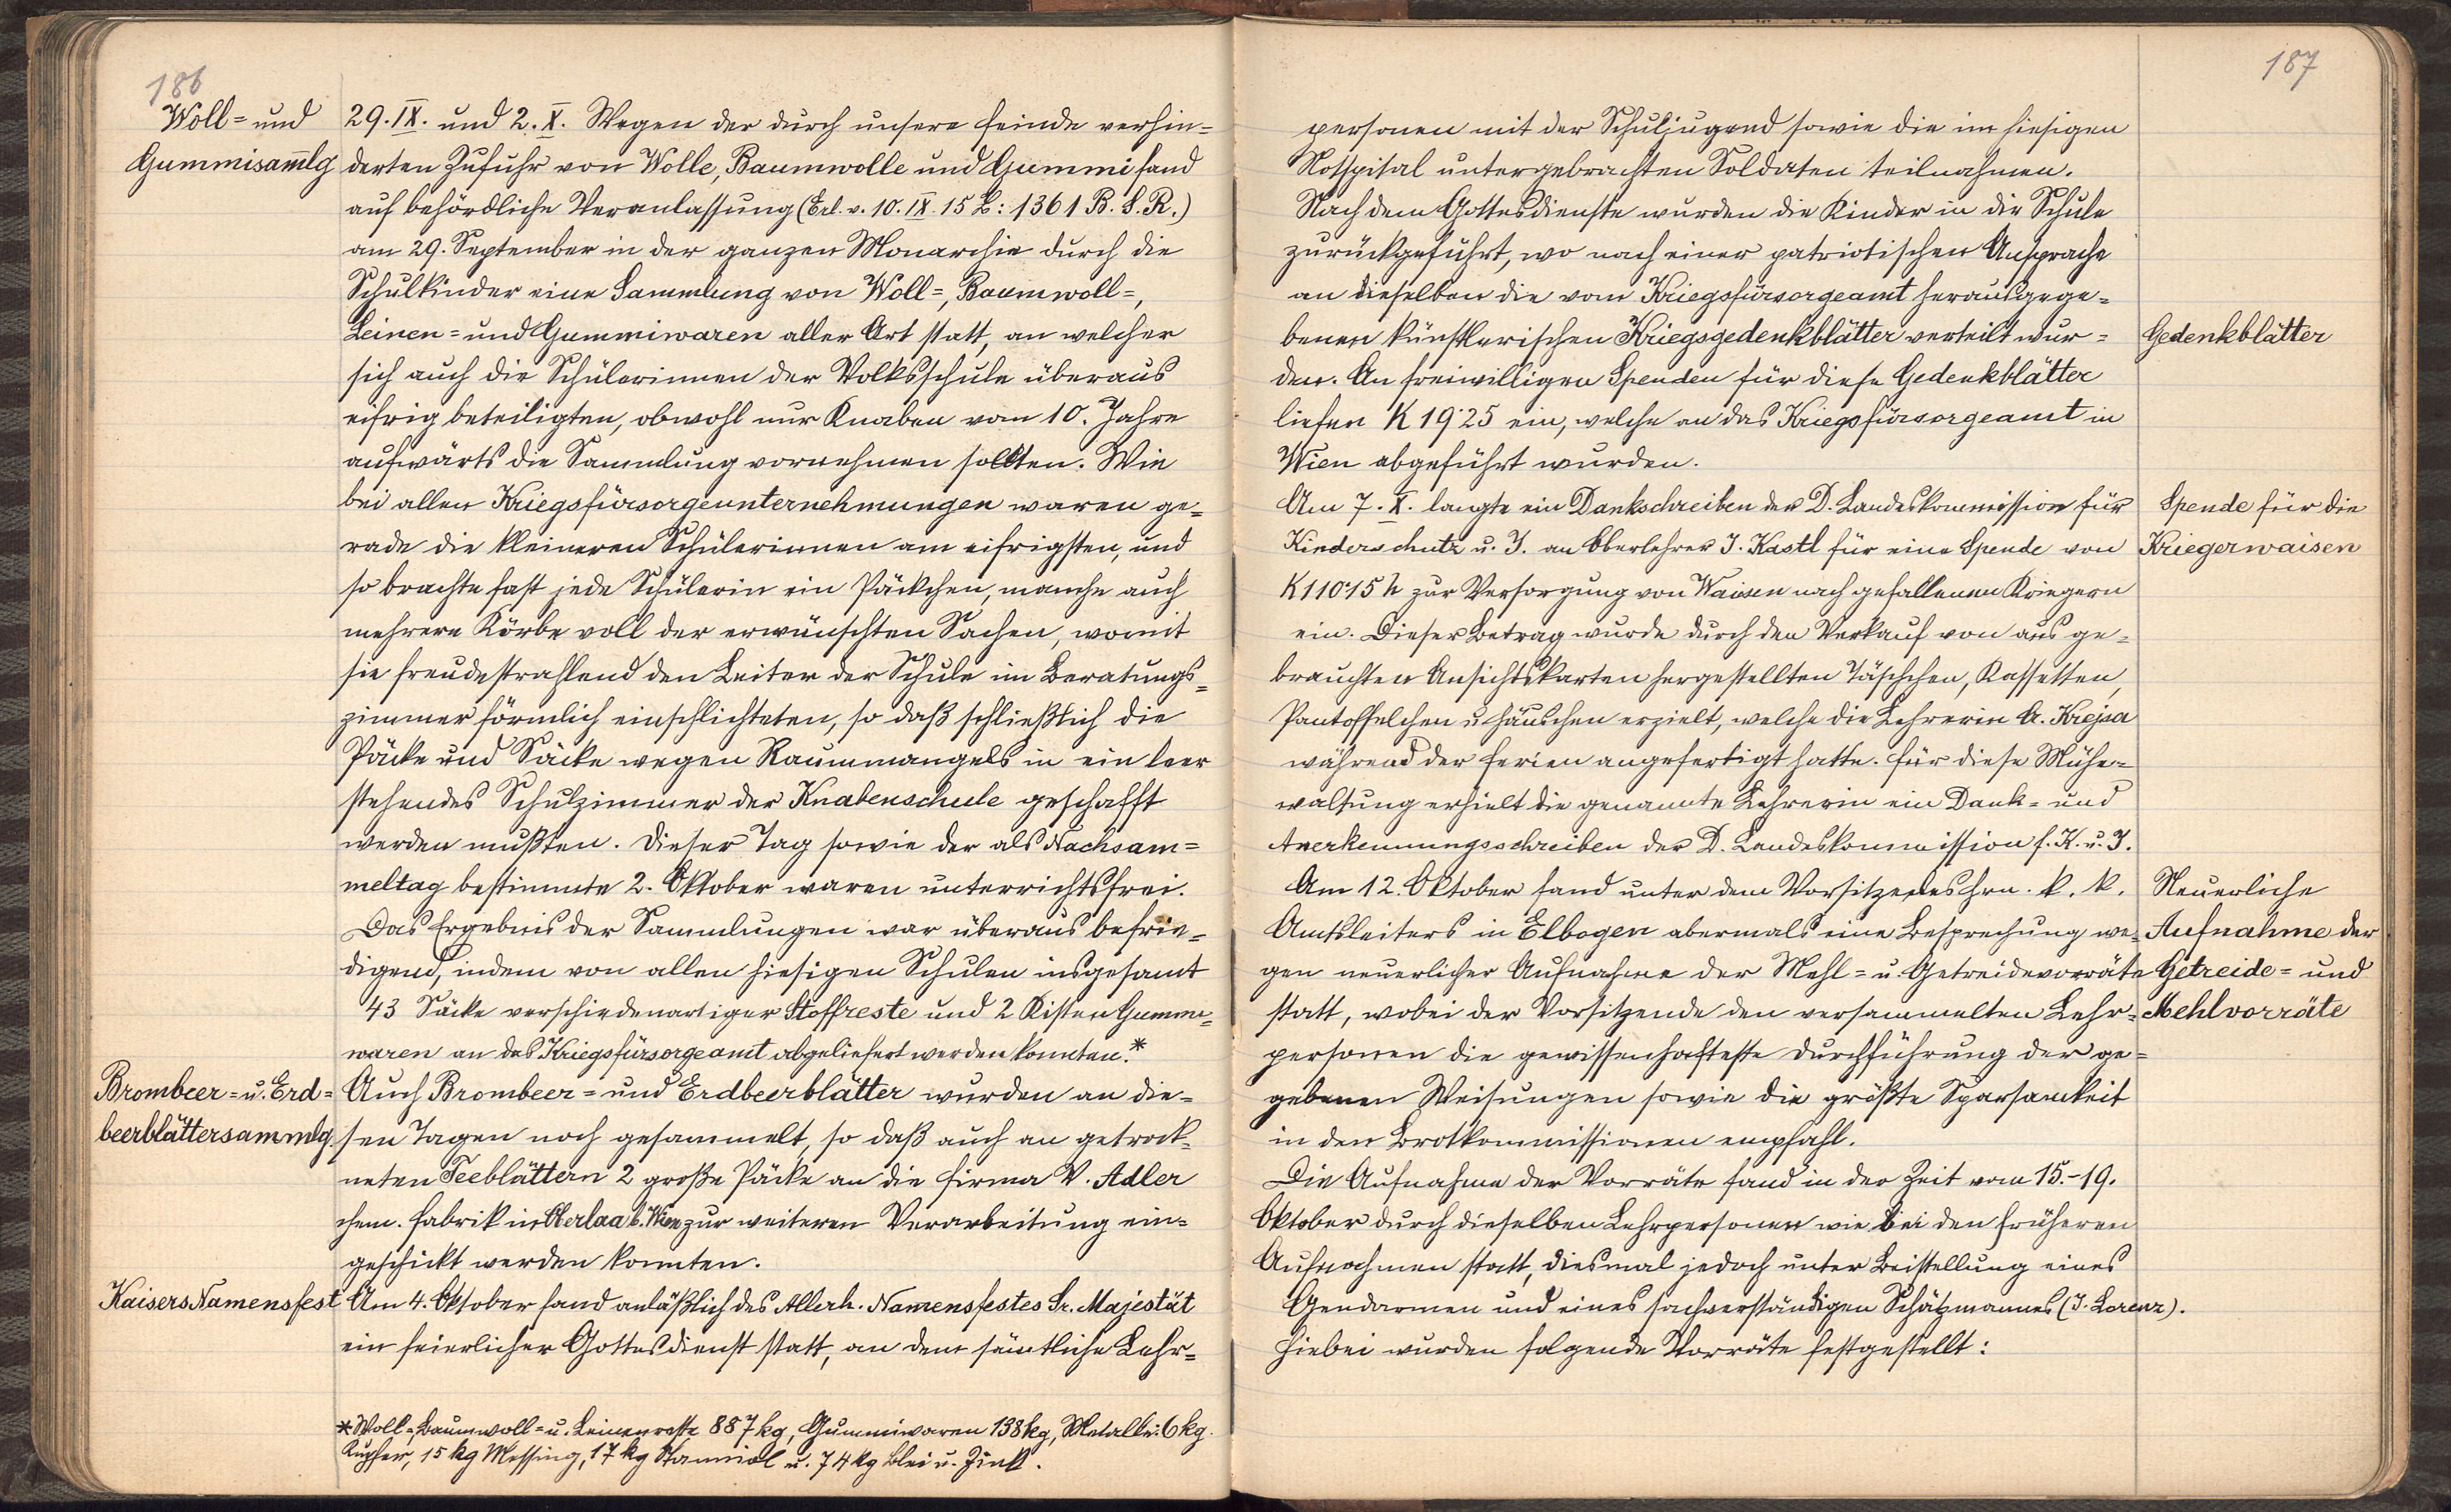 186
Woll- und
Gummisam̄lg
29. IX. und 2. X. Wegen der durch unsere Feinde verhin-
derten Zufuhr von Wolle, Baumwolle und Gummi fand
auf behördliche Veranlassung (Erl. v. 10. IX. 15 Z: 1361 B. S. R.)
am 29. September in der ganzen Monarchie durch die
Schulkinder eine Sammlung von Woll-, Baumwoll-,
Leinen- und Gummiwaren aller Art statt, an welcher
sich auch die Schülerinnen der Volksschule überaus
eifrig beteiligten, obwohl nur Knaben vom 10. Jahre
aufwärts die Sammlung vornehmen sollten. Wie
bei allen Kriegsfürsorgeunternehmungen waren ge-
rade die kleineren Schülerinnen am eifrigsten, und
so brachte fast jede Schülerin ein Päckchen, manche auch
mehrere Körbe voll der erwünschten Sachen, womit
sie freudestrahlend den Leiter der Schule im Beratungs-
zimmer förmlich einschlichteten, so daß schließlich die
Päcke und Säcke wegen Raummangels in ein leer
stehendes Schulzimmer der Knabenschule geschafft
werden mußten. Dieser Tag sowie der als Nachsam-
meltag bestimmte 2. Oktober waren unterrichtsfrei.
Das Ergebnis der Sammlungen war überaus befrie-
digend, indem von allen hiesigen Schulen insgesamt
43 Säcke verschiedenartiger Stoffreste und 2 Kisten Gummi-
waren an das Kriegsfürsorgeamt abgeliefert werden konnten.*
Brombeer- u. Erd-
beerblättersammlg.
Auch Brombeer- und Erdbeerblätter wurden an die-
sen Tagen noch gesammelt, so daß auch an getrock-
neten Teeblättern 2 große Päcke an die Firma V. Adler
chem. Fabrik in Oberlaa b. Wien zur weiteren Verarbeitung ein-
geschickt werden konnten.
Kaisers Namensfest
Am 4. Oktober fand anläßlich des Allerh. Namensfestes Sr. Majestät
ein feierlicher Gottesdienst statt, an dem sämtliche Lehr-
* Woll-, Baumwoll- u. Leinenreste 887 kg, Gummiwaren 138 kg, Metalle: 6 kg.
Kupfer, 15 kg Messing, 17 kg Stanniol u. 74 kg Blei u. Zink.
187
personen mit der Schuljugend sowie die im hiesigen
Notspital untergebrachten Soldaten teilnahmen.
Nach dem Gottesdienste wurden die Kinder in die Schule
zurückgeführt, wo nach einer patriotischen Ansprache
an dieselben die vom Kriegsfürsorgeamt herausgege-
benen künstlerischen Kriegsgedenkblätter verteilt wur-
Gedenkblätter
den. An freiwilligen Spenden für diese Gedenkblätter
liefen K 19·25 ein, welche an das Kriegsfürsorgeamt in
Wien abgeführt wurden.
Am 7. X. langte ein Dankschreiben der D. Landeskommission für
Kinderschutz u. J. an Oberlehrer J. Kastl für eine Spende von
Spende für die
Kriegerwaisen
K 110·15 h zur Versorgung von Waisen nach gefallenen Kriegern
ein. Dieser Betrag wurde durch den Verkauf von aus ge-
brauchten Ansichtskarten hergestellten Täschchen, Kassetten,
Pantoffelchen u. Häuschen erzielt, welche die Lehrerin A. Krejsa
während der Ferien angefertigt hatte. Für diese Mühe-
waltung erhielt die genannte Lehrerin ein Dank- und
Anerkennungsschreiben der D. Landeskommission f. K. u. J.
Am 12. Oktober fand unter dem Vorsitze des Hrn. k. k.
Amtsleiters in Elbogen abermals eine Besprechung we-
gen neuerlicher Aufnahme der Mehl- u. Getreidevorräte
statt, wobei der Vorsitzende den versammelten Lehr-
Neuerliche
Aufnahme der
Getreide- und
Mehlvorräte
personen die gewissenhafteste Durchführung der ge-
gebenen Weisungen sowie die größte Sparsamkeit
in den Brotkommissionen empfahl.
Die Aufnahme der Vorräte fand in der Zeit vom 15.-19.
Oktober durch dieselben Lehrpersonen wie bei den früheren
Aufnahmen statt, diesmal jedoch unter Beistellung eines
Gendarmen und eines sachverständigen Schätzmannes (J. Lorenz).
Hiebei wurden folgende Vorräte festgestellt: